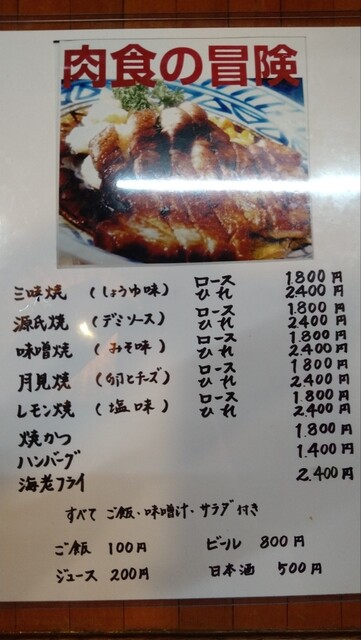 肉食の冒険
三味焼 (しょうゆ味) ロース 1.800円
ひれ 2.400円
源氏焼 (デミソース) ロース 1.800円
ひれ 2.400円
味噌焼 (みそ味) ロース 1.800円
ひれ 2.400円
月見焼 (卵とチーズ) ロース 1.800円
ひれ 2.400円
レモン焼 (塩味) ロース 1.800円
ひれ 2.400円
焼かつ 1.800円
ハンバーグ 1.400円
海老フライ 2.400円
すべて ご飯・味噌汁・サラダ付き
ご飯 100円 ビール 800円
ジュース 200円 日本酒 500円